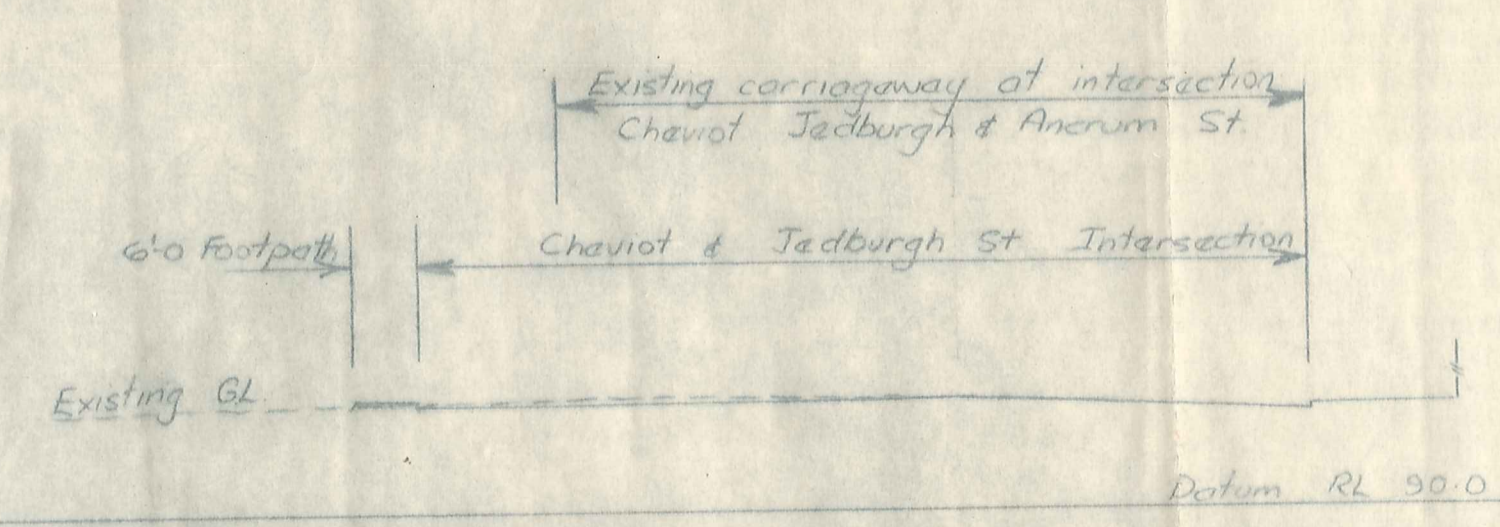 Existing carriageway at intersection
Cheviot Jedburgh & Ancrum St.
6'-0 Footpath
Cheviot & Jedburgh St Intersection
Existing GL.
Datum RL 90.0